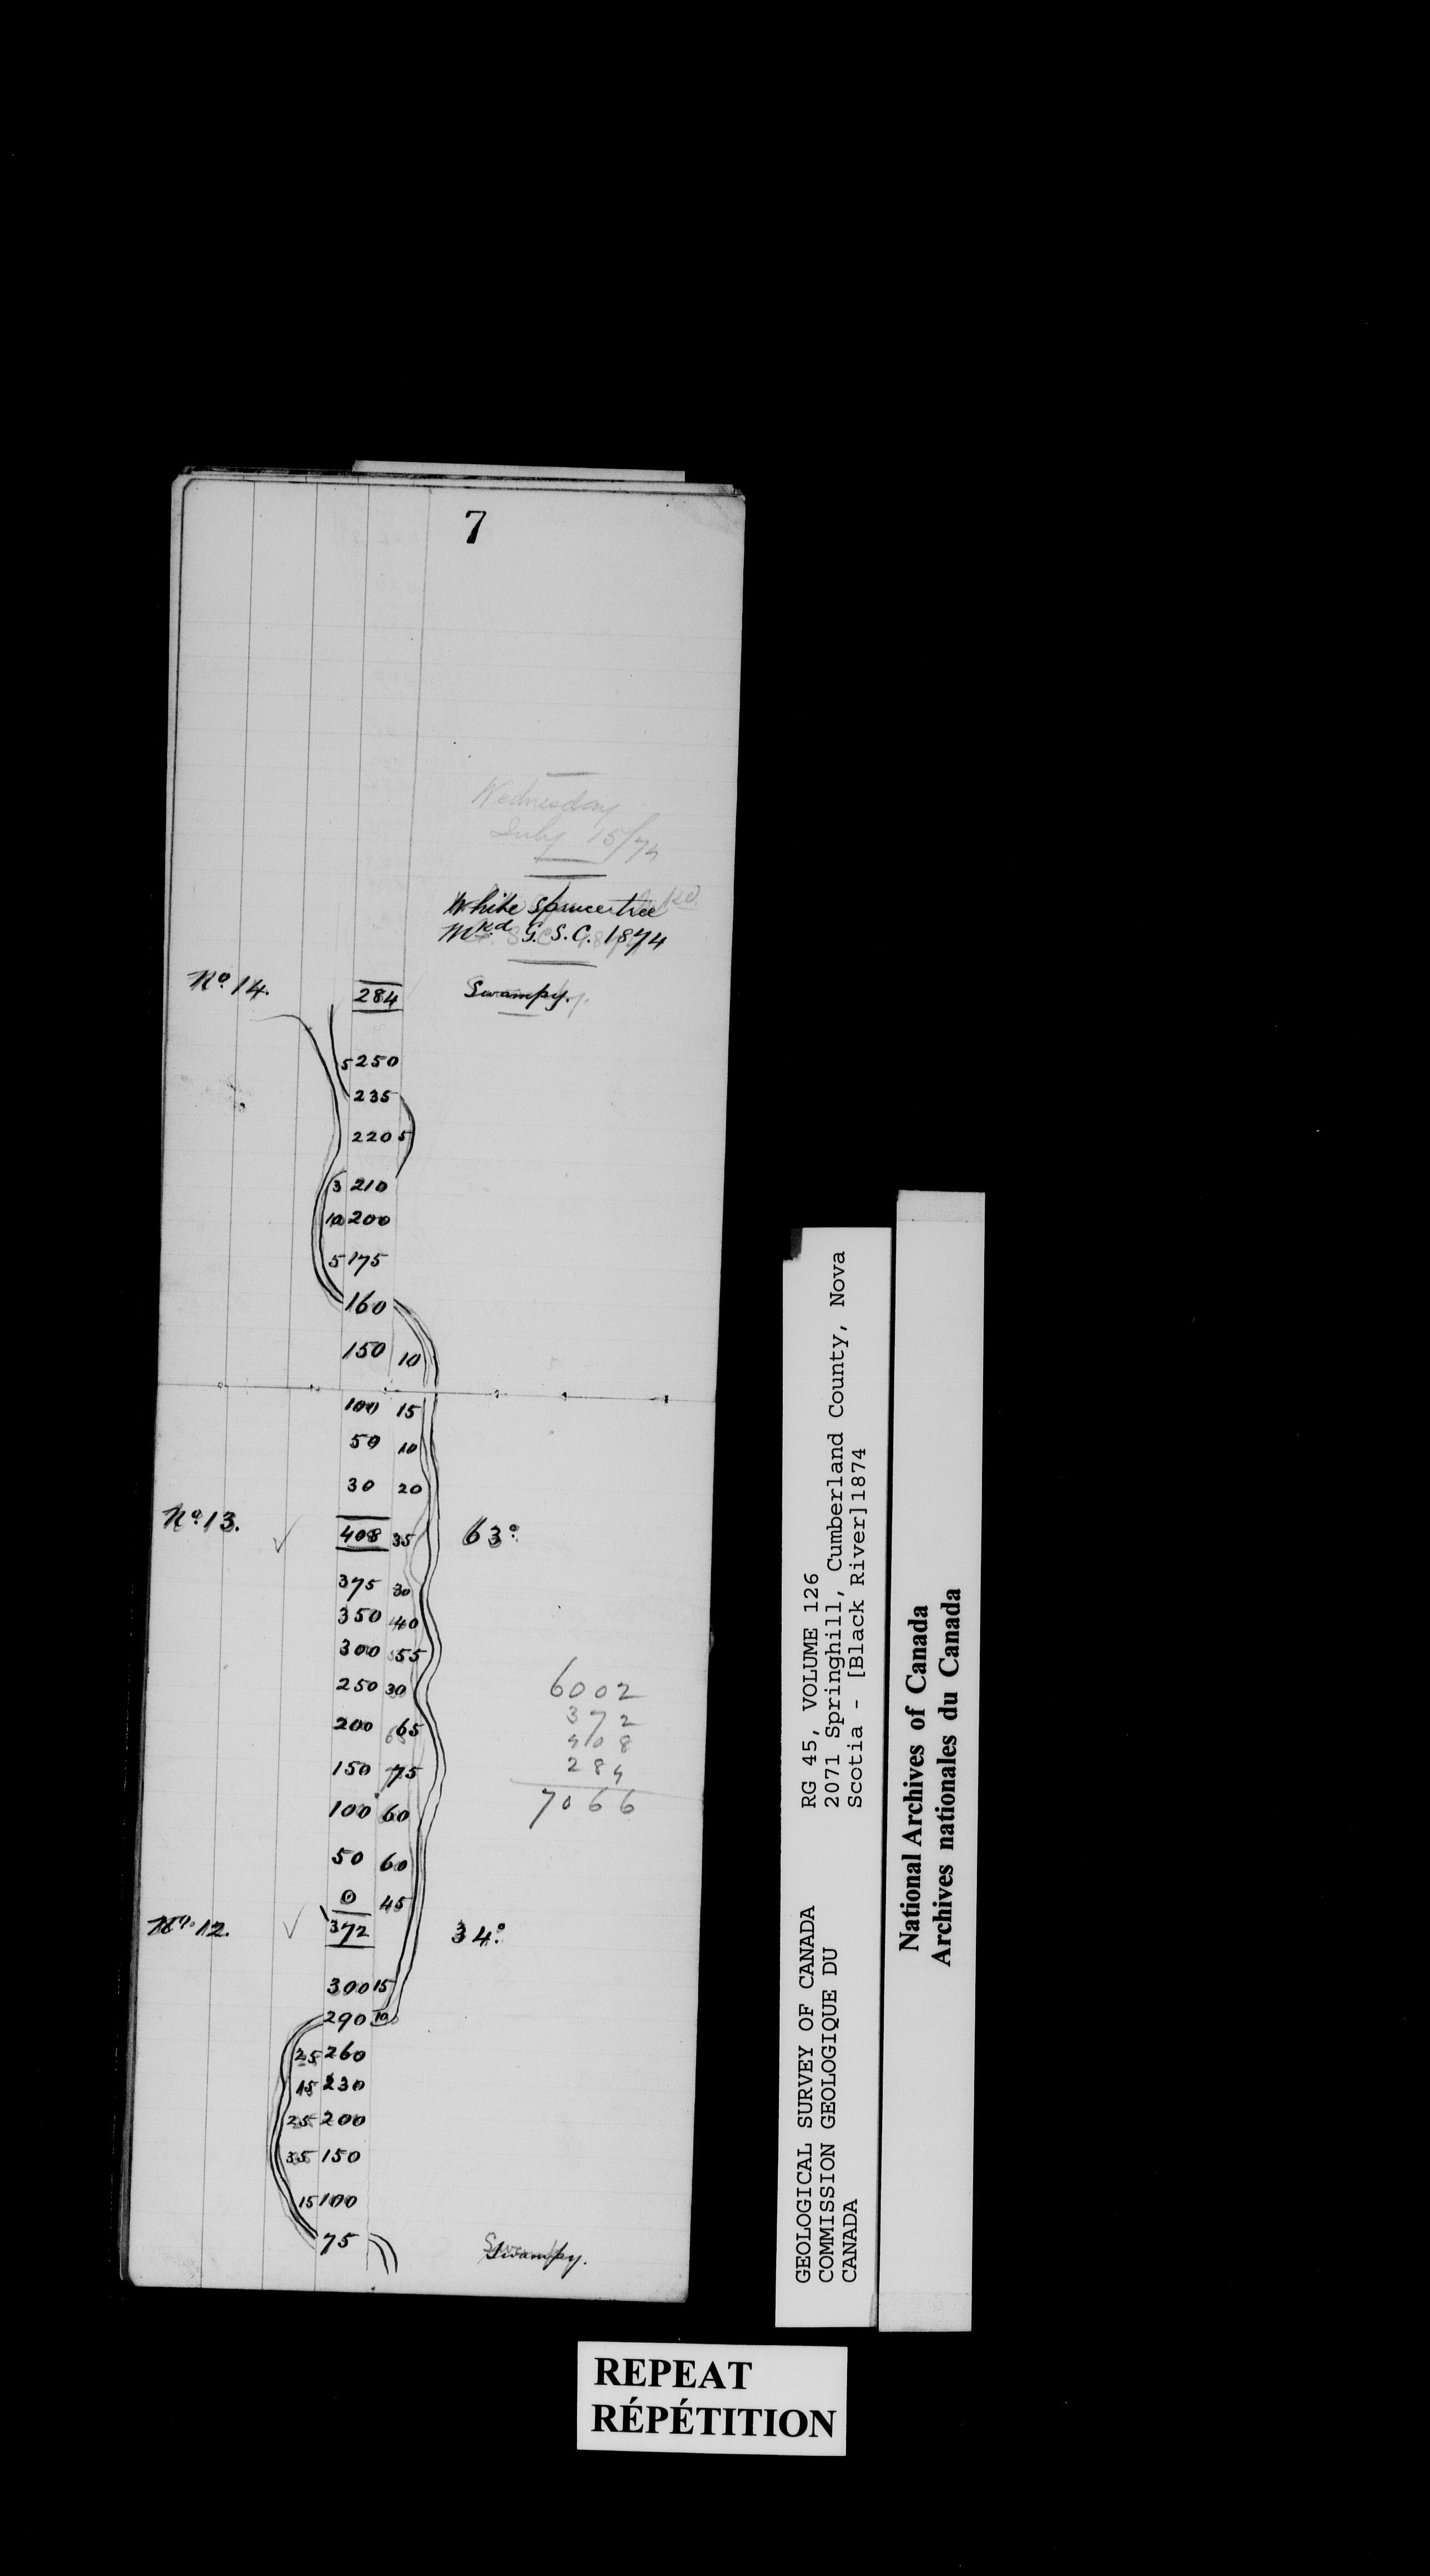 7
Wednesday
July 15/74
White spruce tree
Mkd G. S. C. 1874
No. 14. 284 Swampy.
5 250
235
220 5
3 210
10 200
5 175
160
150 10
100 15
50 10
30 20
No. 13. 408 35 63°
375 30
350 40
300 55
250 30
200 65
150 75
100 60
50 60
0 45
No. 12. 372 34°
300 15
290 10
25 260
15 230
25 200
35 150
15 100
75 Swampy.
6002
372
408
284
7066
GEOLOGICAL SURVEY OF CANADA
COMMISSION GEOLOGIQUE DU
CANADA
RG 45, VOLUME 126
2071 Springhill, Cumberland County, Nova
Scotia - [Black River]1874
National Archives of Canada
Archives nationales du Canada
REPEAT
RÉPÉTITION